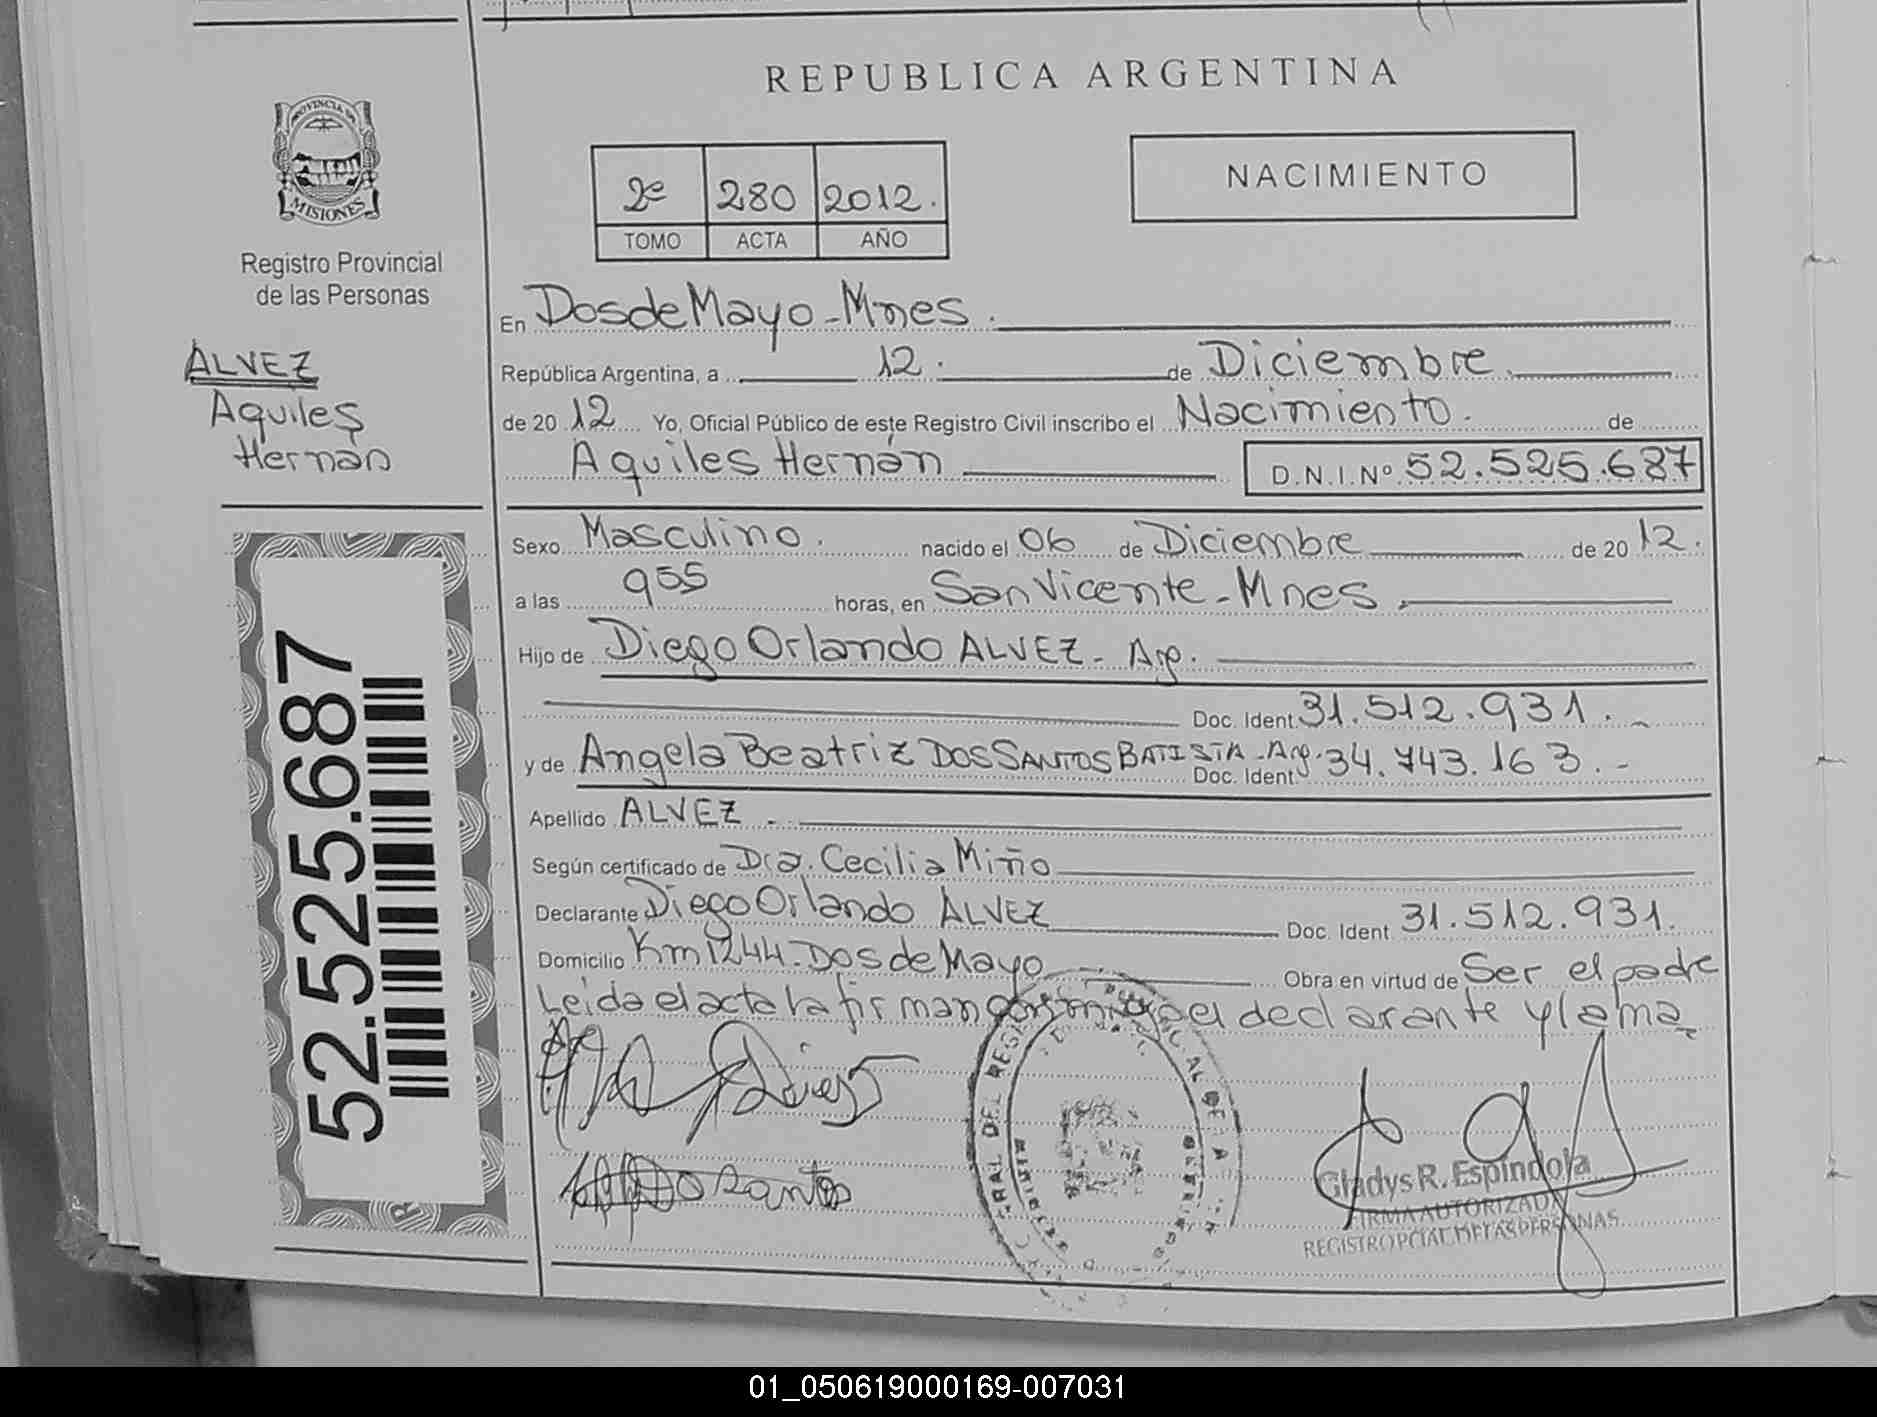 REPUBLICA ARGENTINA
PROVINCIA DE
MISIONES
Registro Provincial
de las Personas
ALVEZ
Aquiles
Hernán
52.525.687
2º 280 2012.
TOMO ACTA AÑO
NACIMIENTO
En Dos de Mayo - Mnes.
República Argentina, a 12. de Diciembre.
de 20 12 Yo, Oficial Público de este Registro Civil inscribo el Nacimiento. de
Aquiles Hernán D.N.I.Nº 52.525.687
Sexo Masculino. nacido el 06 de Diciembre de 20 12.
a las 955 horas, en San Vicente - Mnes.
Hijo de Diego Orlando ALVEZ - Arg.
Doc. Ident 31.512.931.
y de Angela Beatriz DOS SANTOS BATISTA - Arg. Doc. Ident 34.743.163.-
Apellido ALVEZ.
Según certificado de Dra. Cecilia Miño
Declarante Diego Orlando ALVEZ Doc. Ident. 31.512.931.
Domicilio Km 1244 - Dos de Mayo Obra en virtud de Ser el padre
Leida el acta la firman conmigo el declarante y la ma
dre
Dos Santos
Gladys R. Espindola
FIRMA AUTORIZADA
REGISTRO PCIAL. DE LAS PERSONAS
01_050619000169-007031